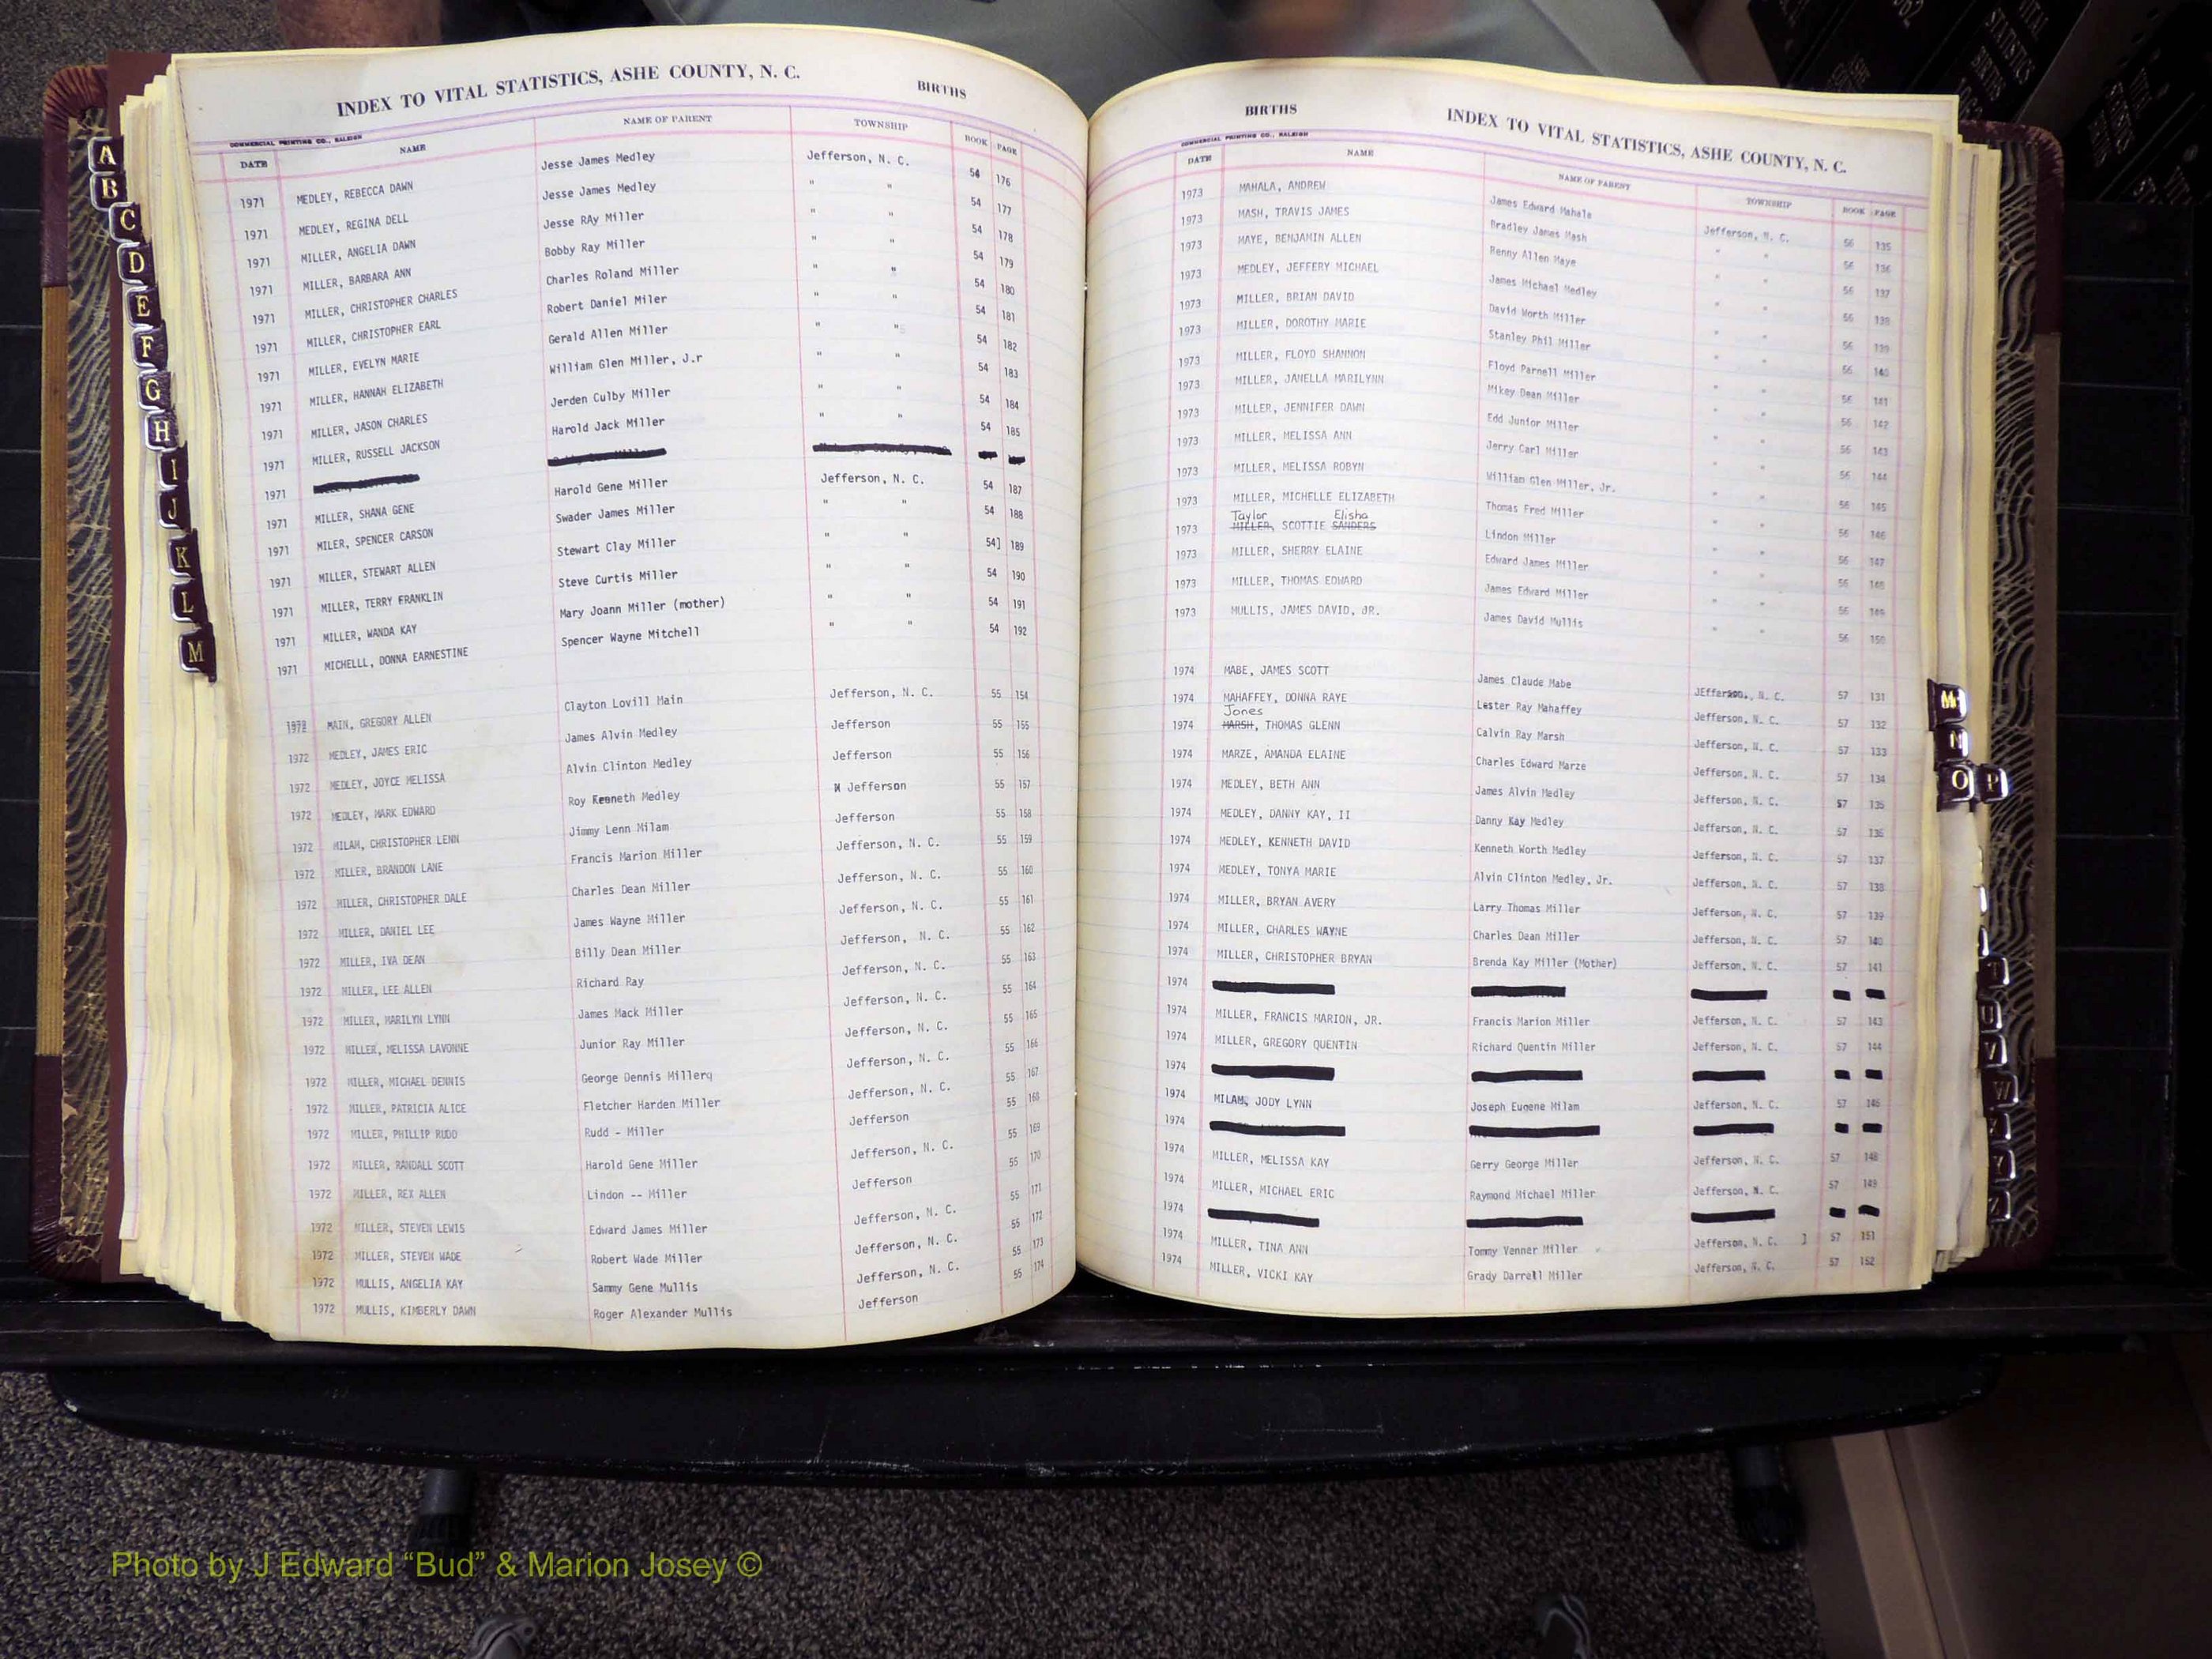 INDEX TO VITAL STATISTICS, ASHE COUNTY, N. C. BIRTHS
COMMERCIAL PRINTING CO., RALEIGH
DATE NAME NAME OF PARENT TOWNSHIP BOOK PAGE
1971 MEDLEY, REBECCA DAWN Jesse James Medley Jefferson, N. C. 54 176
1971 MEDLEY, REGINA DELL Jesse James Medley " " 54 177
1971 MILLER, ANGELIA DAWN Jesse RAy Miller " " 54 178
1971 MILLER, BARBARA ANN Bobby Ray Miller " " 54 179
1971 MILLER, CHRISTOPHER CHARLES Charles Roland Miller " " 54 180
1971 MILLER, CHRISTOPHER EARL Robert Daniel Miler " " 54 181
1971 MILLER, EVELYN MARIE Gerald Allen Miller " " 54 182
1971 MILLER, HANNAH ELIZABETH William Glen Miller, J.r " " 54 183
1971 MILLER, JASON CHARLES Jerden Culby Miller " " 54 184
1971 MILLER, RUSSELL JACKSON Harold Jack Miller " " 54 185
1971
1971 MILLER, SHANA GENE Harold Gene Miller Jefferson, N. C. 54 187
1971 MILER, SPENCER CARSON Swader James Miller " " 54 188
1971 MILLER, STEWART ALLEN Stewart Clay Miller " " 54] 189
1971 MILLER, TERRY FRANKLIN Steve Curtis Miller " " 54 190
1971 MILLER, WANDA KAY Mary Joann Miller (mother) " " 54 191
1971 MICHELLL, DONNA EARNESTINE Spencer Wayne Mitchell " " 54 192
1972 MAIN, GREGORY ALLEN Clayton Lovill Main Jefferson, N. C. 55 154
1972 MEDLEY, JAMES ERIC James Alvin Medley Jefferson 55 155
1972 MEDLEY, JOYCE MELISSA Alvin Clinton Medley Jefferson 55 156
1972 MEDLEY, MARK EDWARD Roy Kenneth Medley Jefferson 55 157
1972 MILAM, CHRISTOPHER LENN Jimmy Lenn Milam Jefferson 55 158
1972 MILLER, BRANDON LANE Francis Marion Miller Jefferson, N. C. 55 159
1972 MILLER, CHRISTOPHER DALE Charles Dean Miller Jefferson, N. C. 55 160
1972 MILLER, DANIEL LEE James Wayne Miller Jefferson, N. C. 55 161
1972 MILLER, IVA DEAN Billy Dean Miller Jefferson, N. C. 55 162
1972 MILLER, LEE ALLEN Richard Ray Jefferson, N. C. 55 163
1972 MILLER, MARILYN LYNN James Mack Miller Jefferson, N. C. 55 164
1972 MILLER, MELISSA LAVONNE Junior Ray Miller Jefferson, N. C. 55 165
1972 MILLER, MICHAEL DENNIS George Dennis Millerq Jefferson, N. C. 55 166
1972 MILLER, PATRICIA ALICE Fletcher Harden Miller Jefferson, N. C. 55 167
1972 MILLER, PHILLIP RUDD Rudd - Miller Jefferson 55 168
1972 MILLER, RANDALL SCOTT Harold Gene Miller Jefferson, N. C. 55 169
1972 MILLER, REX ALLEN Lindon -- Miller Jefferson 55 170
1972 MILLER, STEVEN LEWIS Edward James Miller Jefferson, N. C. 55 171
1972 MILLER, STEVEN WADE Robert Wade Miller Jefferson, N. C. 55 172
1972 MULLIS, ANGELIA KAY Sammy Gene Mullis Jefferson, N. C. 55 173
1972 MULLIS, KIMBERLY DAWN Roger Alexander Mullis Jefferson 55 174
A
B
C
D
E
F
G
H
I
J
K
L
M
BIRTHS INDEX TO VITAL STATISTICS, ASHE COUNTY, N. C.
COMMERCIAL PRINTING CO., RALEIGH
DATE NAME NAME OF PARENT TOWNSHIP BOOK PAGE
1973 MAHALA, ANDREW James Edward Mahala Jefferson, N. C. 56 135
1973 MASH, TRAVIS JAMES Bradley James Mash " " 56 136
1973 MAYE, BENJAMIN ALLEN Renny Allen Maye " " 56 137
1973 MEDLEY, JEFFERY MICHAEL James Michael Medley " " 56 138
1973 MILLER, BRIAN DAVID David Worth Miller " " 56 139
1973 MILLER, DOROTHY MARIE Stanley Phil Miller " " 56 140
1973 MILLER, FLOYD SHANNON Floyd Parnell Miller " " 56 141
1973 MILLER, JANELLA MARILYNN Mikey Dean Miller " " 56 142
1973 MILLER, JENNIFER DAWN Edd Junior Miller " " 56 143
1973 MILLER, MELISSA ANN Jerry Carl Miller " " 56 144
1973 MILLER, MELISSA ROBYN William Glen Miller, Jr. " " 56 145
1973 MILLER, MICHELLE ELIZABETH Thomas Fred Miller " " 56 146
Taylor Elisha
1973 MILLER, SCOTTIE SANDERS Lindon Miller " " 56 147
1973 MILLER, SHERRY ELAINE Edward James Miller " " 56 148
1973 MILLER, THOMAS EDWARD James Edward Miller " " 56 149
1973 MULLIS, JAMES DAVID, JR. James David Mullis " " 56 150
1974 MABE, JAMES SCOTT James Claude Mabe JEfferson, N. C. 57 131
1974 MAHAFFEY, DONNA RAYE Lester Ray Mahaffey Jefferson, N. C. 57 132
Jones
1974 MARSH, THOMAS GLENN Calvin Ray Marsh Jefferson, N. C. 57 133
1974 MARZE, AMANDA ELAINE Charles Edward Marze Jefferson, N. C. 57 134
1974 MEDLEY, BETH ANN James Alvin Medley Jefferson, N. C. 57 135
1974 MEDLEY, DANNY KAY, II Danny Kay Medley Jefferson, N. C. 57 136
1974 MEDLEY, KENNETH DAVID Kenneth Worth Medley Jefferson, N. C. 57 137
1974 MEDLEY, TONYA MARIE Alvin Clinton Medley, Jr. Jefferson, N. C. 57 138
1974 MILLER, BRYAN AVERY Larry Thomas Miller Jefferson, N. C. 57 139
1974 MILLER, CHARLES WAYNE Charles Dean Miller Jefferson, N. C. 57 140
1974 MILLER, CHRISTOPHER BRYAN Brenda Kay Miller (Mother) Jefferson, N. C. 57 141
1974
1974 MILLER, FRANCIS MARION, JR. Francis Marion Miller Jefferson, N. C. 57 143
1974 MILLER, GREGORY QUENTIN Richard Quentin Miller Jefferson, N. C. 57 144
1974
1974 MILAM, JODY LYNN Joseph Eugene Milam Jefferson, N. C. 57 146
1974
1974 MILLER, MELISSA KAY Gerry George Miller Jefferson, N. C. 57 148
1974 MILLER, MICHAEL ERIC Raymond Michael Miller Jefferson, N. C. 57 149
1974
1974 MILLER, TINA ANN Tommy Venner Miller Jefferson, N. C. ] 57 151
1974 MILLER, VICKI KAY Grady Darrell Miller Jefferson, N. C. 57 152
N
O P
T
U
V
W
Y
Z
VITAL STATISTICS BIRTHS
Photo by J Edward “Bud” & Marion Josey ©